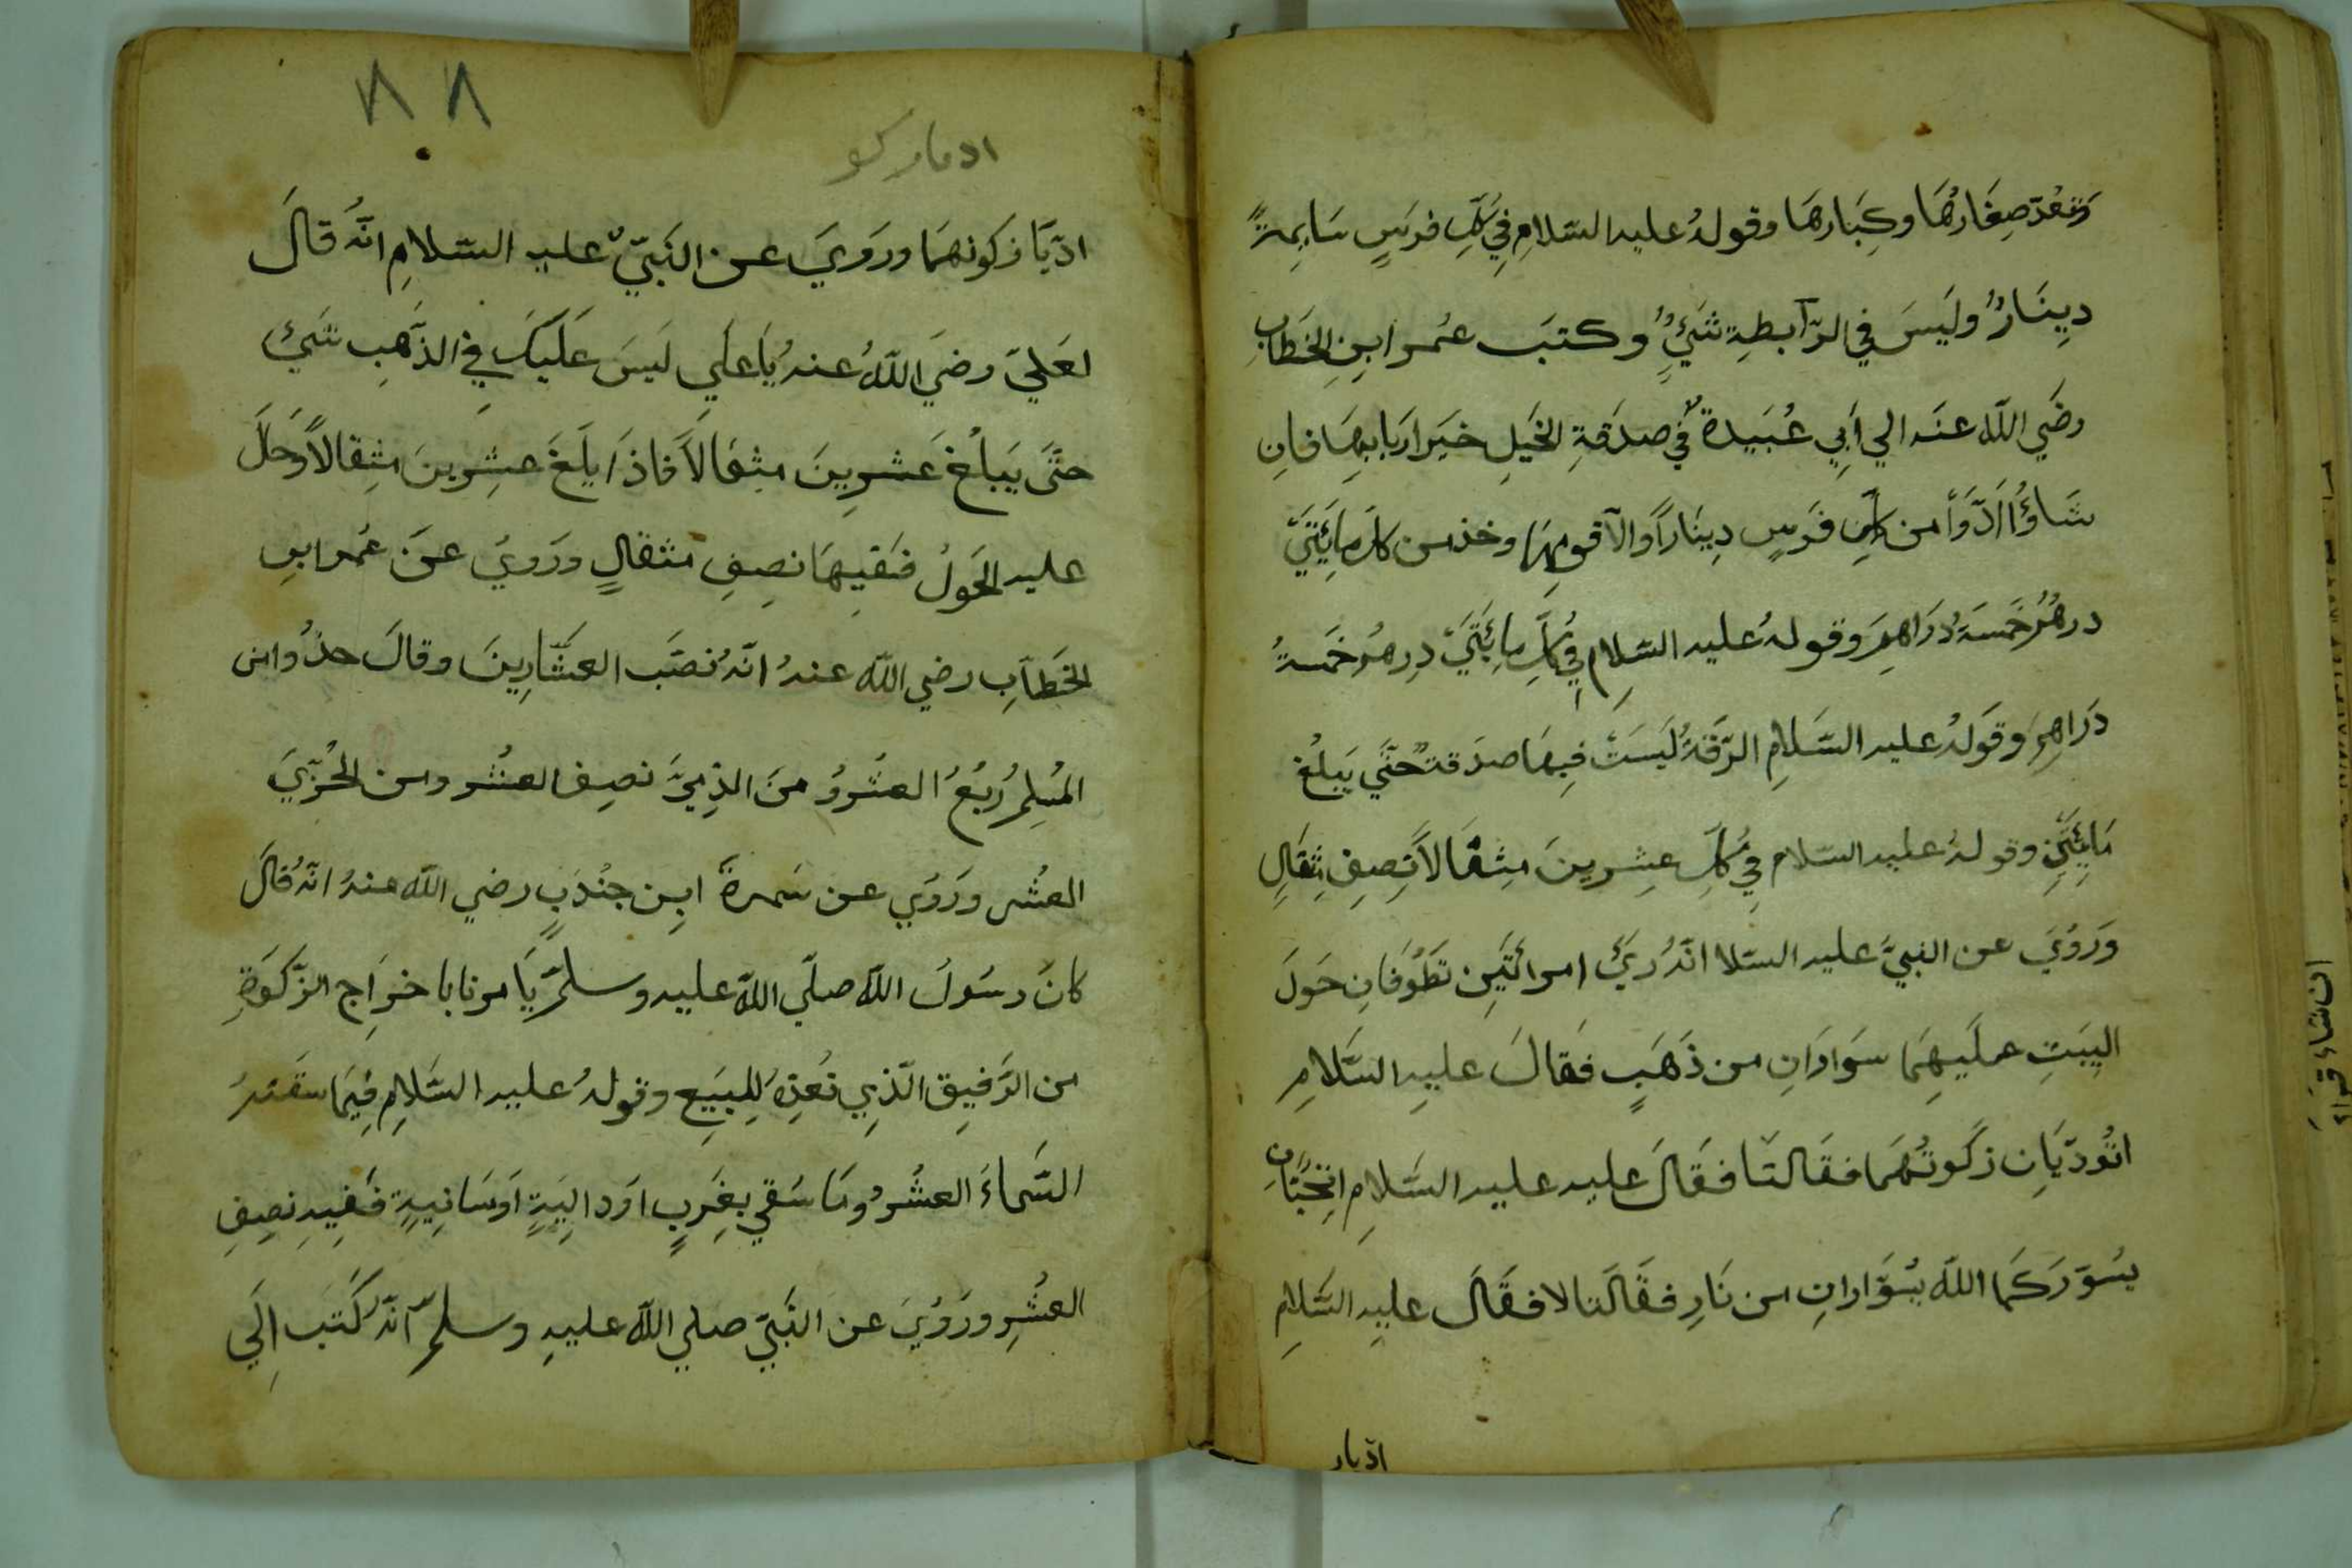 وتعُدّ صِغَارُهَا وكِبَارهَا وقولهُ عليه السّلامِ فِي كُلّ فرَسٍ سَايِمةً
دِينَارٌ وليَسَ في الرّابطِة شَيٌ وكتبَ عُمر ابنِ الخَطابِ
رضَي اللّه عنَه الي أَبِي عُبَيدةَ في صدَقةِ الخَيلِ خيَر اربابِهَا فانِ
شَاؤُا ادَّوَا من كلِّ فرَسٍ دِينَاراً والآ قومِهَا وخذ من كل مِايَتَيَ
درهُمُ خَمسَةُ دُرَاهِمَ وقولهُ عليه السّلامِ فِي كُلِّ مِايَتَيَ دِرهمُ خَمسةُ
دَراهِمَ وقَولهُ عليه السَّلامِ الرّقَةُ ليَسَتَ فيهَا صدَقة حَتّي يَبلُغ
مَايِتَيَنِ وقولهُ عليه السّلام فِي كُلِّ عِشِرينَ مِثِقَالاً نِصِفِ مِثِقَالٍ
وَرَوُيَ عن النبيَّ عليه السّلا انّهُ رَيَ امرائتَيِن تَطَوُفَانِ حَولَ
البِيَتِ عليَهِمَا سَوَارَانِ من ذَهَبٍ فَقالَ عليهِ السَّلامِ
اتُودّيَانِ زكَوتُهُمَا فقَالتَا فقَقَالَ عليه عليه السَّلامِ اتِحُبّانِ
يسُوّرَكمَا اللّه بسُوَّارانِ من نَارِ فقَالَتا لا فقَالَ عليهِ السَّلامِ
ادّيا
٨٨
ادّيَا زكوتهمَا ورَوَيَ عن النَبيّ عليه السّلامِ انَّهُ قالَ
لعَليّ رضَي اللّهُ عنهُ يَا عَلي ليَسَ عَليَكَ في الذَهِب شَيئ
حتَّى يَبلُغ عَشرِينَ مثِقَالاً فاذَا بلَغَ عشِرِينَ مثِقالاً وَحَالَ
عليه الحَولُ ففَيِهَا نصِفِ مثقالٍ ورَويُ عنَ عُمر ابنِ
الخَطاّبِ رضي اللّه عنهُ انّهُ نصَب العشَّارِينَ وقالَ خذُوا من
المُسِلمِ رُبعُ العشُرو مَنِ الذِميَّ نصِف العشُر ومن الحُرّبيَ
العشُر ورَوُي عن سَمرةَ ابِن جنُدَبٍ رضي اللّه عنهُ انّهُ قالَ
كانَ رسَولُ اللّه صلّي اللّه عليه وسلمَّ يَامرنا با خرَاج الزّكَوةِ
من الرَّقيِق الّذِي نعُدّهُ للِبيَعِ وقولهُ عليه السَّلامِ فيِمَا سقَتهُ
السَّماءَ العشُرُ ومَا سَقي بغِرَبٍ اوَدالِيَةٍ اوَسَانِيةٍ ففَيِهِ نصِفِ
العشُرِ ورَوُيَ عن النَبّي صلي اللّه عليهِ وسلمّ انّهُ كَتَب الِيَ
ان شاء